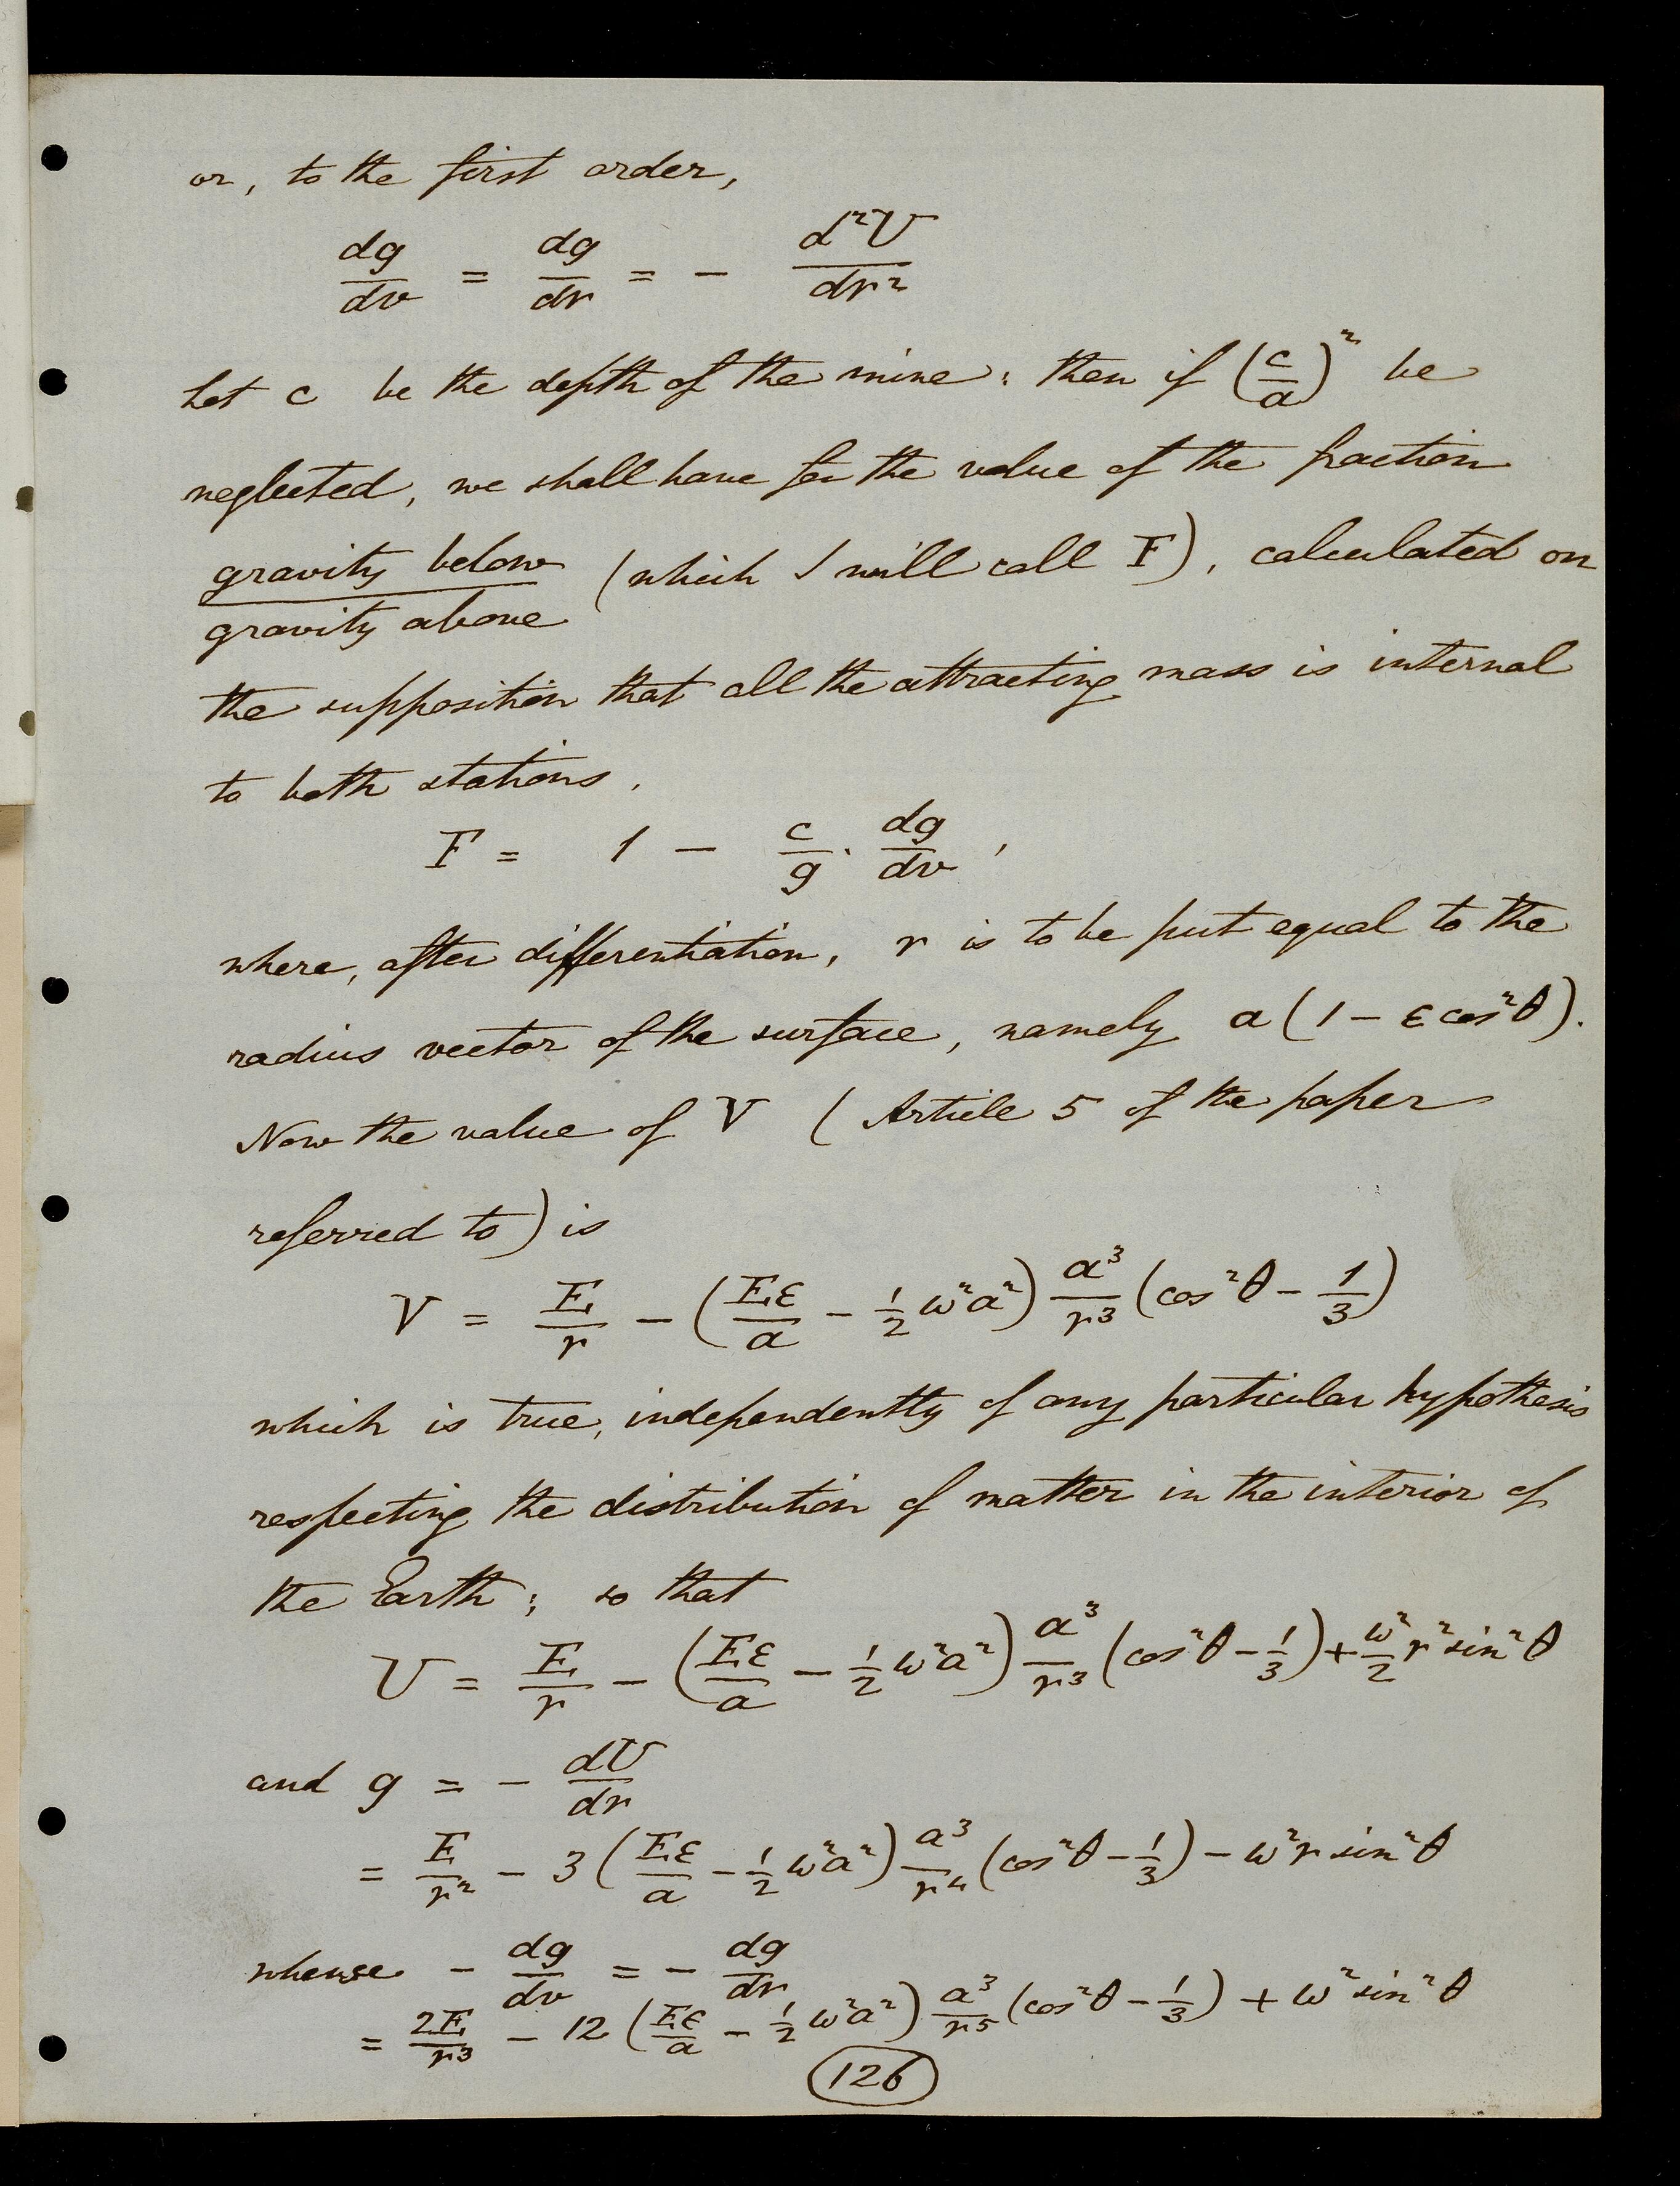 or, to the first order,
dg/dv = dg/dr = - d²U/dr²
Let c be the depth of the mine; then if (c/a)² be
neglected, we shall have for the value of the fraction
gravity below/gravity above (which I will call F), calculated on
the supposition that all the attracting mass is internal
to both stations,
F = 1 - c/g · dg/dv,
where, after differentiation, r is to be put equal to the
radius vector of the surface, namely a(1 - ε cos²θ).
Now the value of V (Article 5 of the paper
referred to) is
V = E/r - (Eε/a - 1/2 ω²a²) a³/r³ (cos²θ - 1/3)
which is true, independently of any particular hypothesis
respecting the distribution of matter in the interior of
the Earth; so that
U = E/r - (Eε/a - 1/2 ω²a²) a³/r³ (cos²θ - 1/3) + ω²/2 r² sin²θ
and g = - dU/dr
= E/r² - 3 (Eε/a - 1/2 ω²a²) a³/r⁴ (cos²θ - 1/3) - ω²r sin²θ
whense - dg/dv = - dg/dr
= 2E/r³ - 12 (Eε/a - 1/2 ω²a²) a³/r⁵ (cos²θ - 1/3) + ω² sin²θ
126